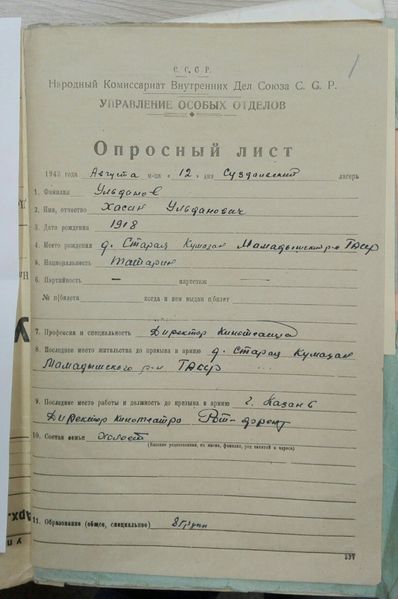 1
С. С. С. Р.
Народный Комиссариат Внутренних Дел Союза С. С. Р.
УПРАВЛЕНИЕ ОСОБЫХ ОТДЕЛОВ
Опросный лист
1943 года Августа м-ца « 12 » дня Суздальский лагерь
1. Фамилия Ульданов
2. Имя, отчество Хасан Ульданович
3. Дата рождения 1918
4. Место рождения д. Старая Кумазан Мамадышский р-н ТАССР
5. Национальность татарин
6. Партийность — партстаж
№ п|билета когда и кем выдан п|билет
7. Профессия и специальность Директор Кинотеатра
8. Последнее место жительства до призыва в армию д. Старая Кумазан
Мамадышского р-н ТАССР
9. Последнее место работы и должность до призыва в армию г. Казань
Директор кинотеатра
10. Состав семьи холост
11. Образование (общее, специальное) 8 групп